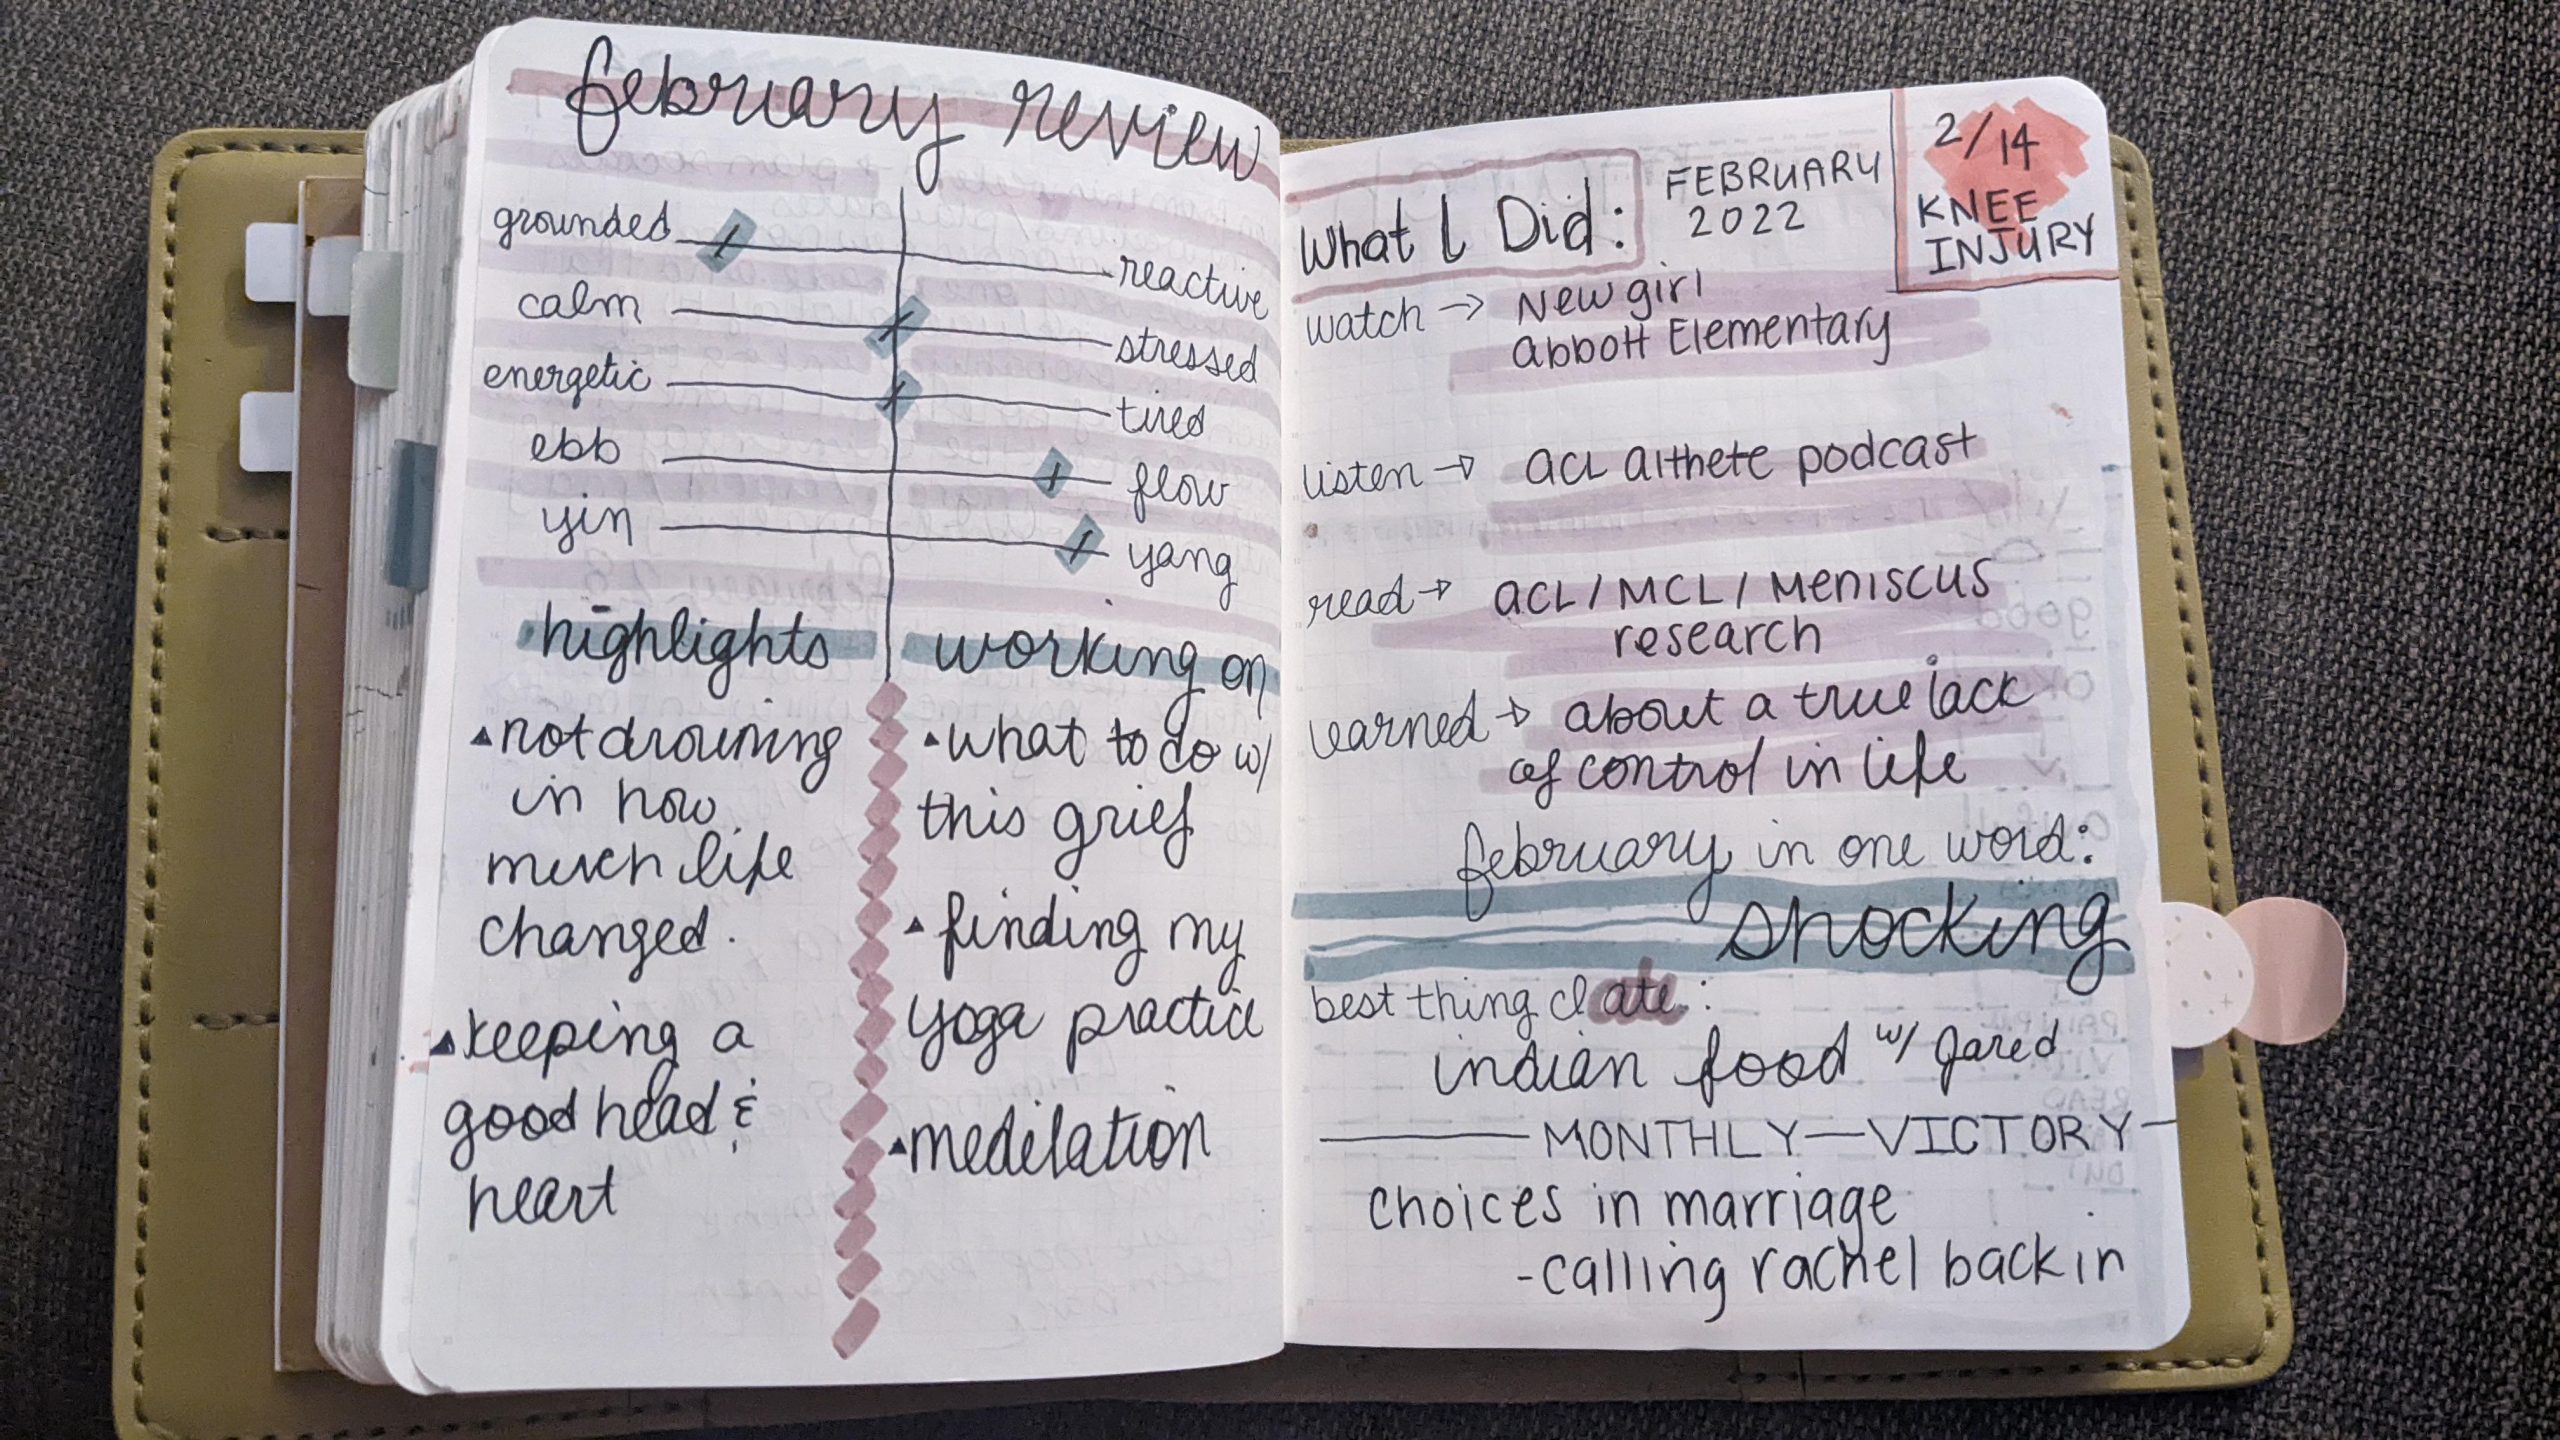 february review
grounded
reactive
calm
stressed
energetic
tired
ebb
flow
yin
yang
highlights
▲ not drowning
in how
much life
changed.
▲ keeping a
good head &
heart
working on
▲ what to do w/
this grief
▲ finding my
yoga practice
▲ meditation
What I Did:
FEBRUARY
2022
2/14
KNEE
INJURY
watch → New girl
Abbott Elementary
listen → ACL Althete podcast
read → ACL / MCL / Meniscus
research
learned → about a true lack
of control in life
february in one word:
shocking
best thing I ate:
indian food w/ Jared
MONTHLY VICTORY
choices in marriage
- calling rachel back in